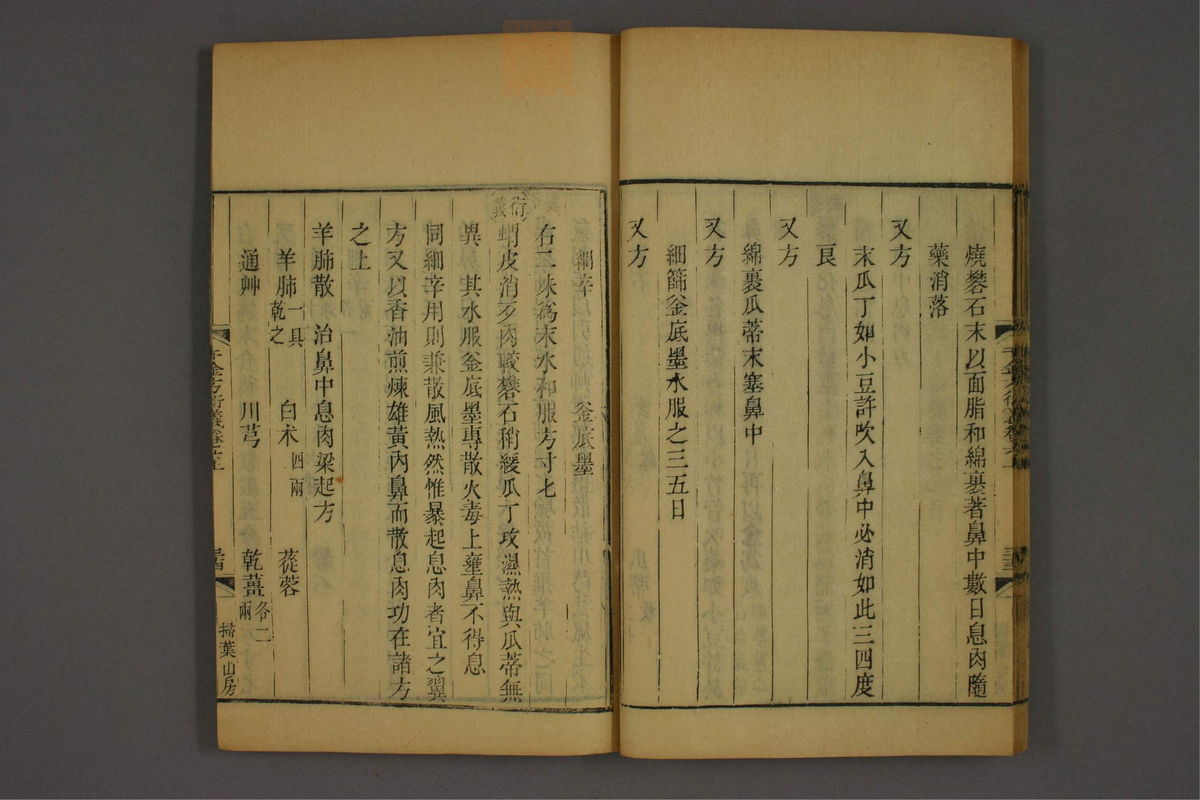 燒礬石末以面脂和綿裹著鼻中數日息肉隨
藥消落
又方
末瓜丁如小豆許吹入鼻中必消如此三四度
良
又方
綿裹瓜蒂末塞鼻中
又方
細篩釜底墨水服之三五日
又方
細辛 釜底墨
右二味為末水和服方寸匕
衍義
蝟皮消歹肉較礬石稍緩瓜丁攻濕熱與瓜蒂無
異 其水服釜底墨專散火毒上壅鼻不得息
同細辛用則兼散風熱然惟暴起息肉者宜之翼
方又以香油煎煉雄黃內鼻而散息肉功在諸方
之上
羊肺散 治鼻中息肉梁起方
羊肺一具乾之 白朮四兩 蓯蓉
通艸 川芎 乾薑各二兩
千金方衍義卷六上
三古
掃葉山房